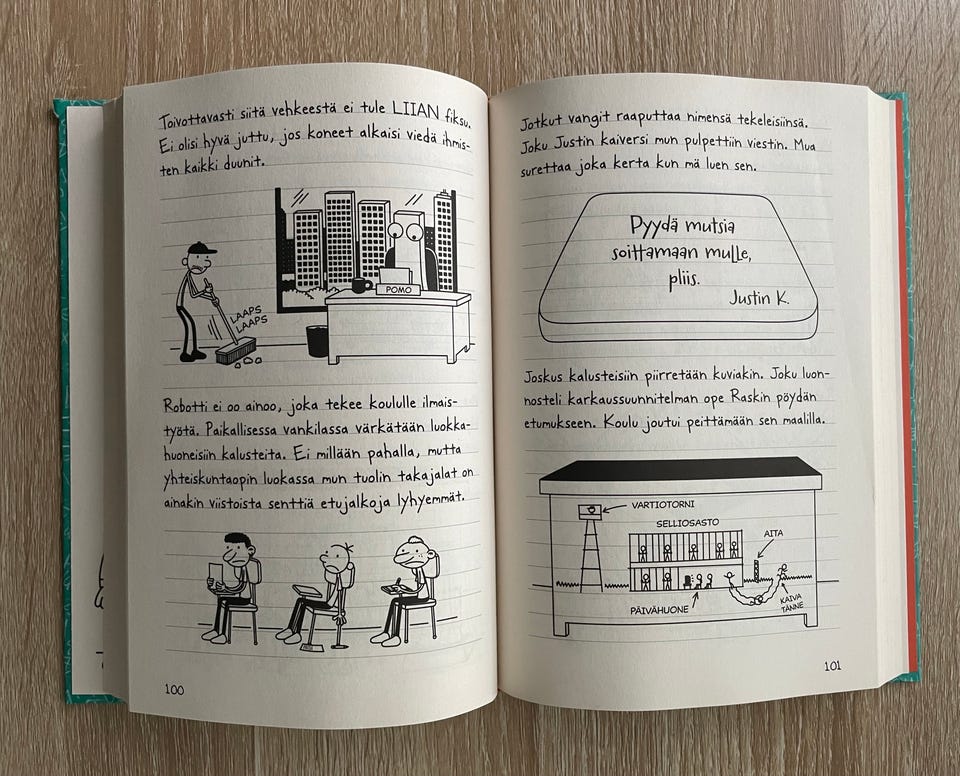 Toivottavasti siitä vehkeestä ei tule LIIAN fiksu.
Ei olisi hyvä juttu, jos koneet alkaisi viedä ihmis-
ten kaikki duunit.
POMO
LAAPS
LAAPS
Robotti ei oo ainoo, joka tekee koululle ilmais-
työtä. Paikallisessa vankilassa värkätään luokka-
huoneisiin kalusteita. Ei millään pahalla, mutta
yhteiskuntaopin luokassa mun tuolin takajalat on
ainakin viistoista senttiä etujalkoja lyhyemmät.
100
Jotkut vangit raaputtaa nimensä tekeleisiinsä.
Joku Justin kaiversi mun pulpettiin viestin. Mua
surettaa joka kerta kun mä luen sen.
Pyydä mutsia
soittamaan mulle,
pliis.
Justin K.
Joskus kalusteisiin piirretään kuviakin. Joku luon-
nosteli karkaussuunnitelman ope Raskin pöydän
etumukseen. Koulu joutui peittämään sen maalilla.
VARTIOTORNI
SELLIOSASTO
AITA
PÄIVÄHUONE
KAIVA
TÄNNE
101